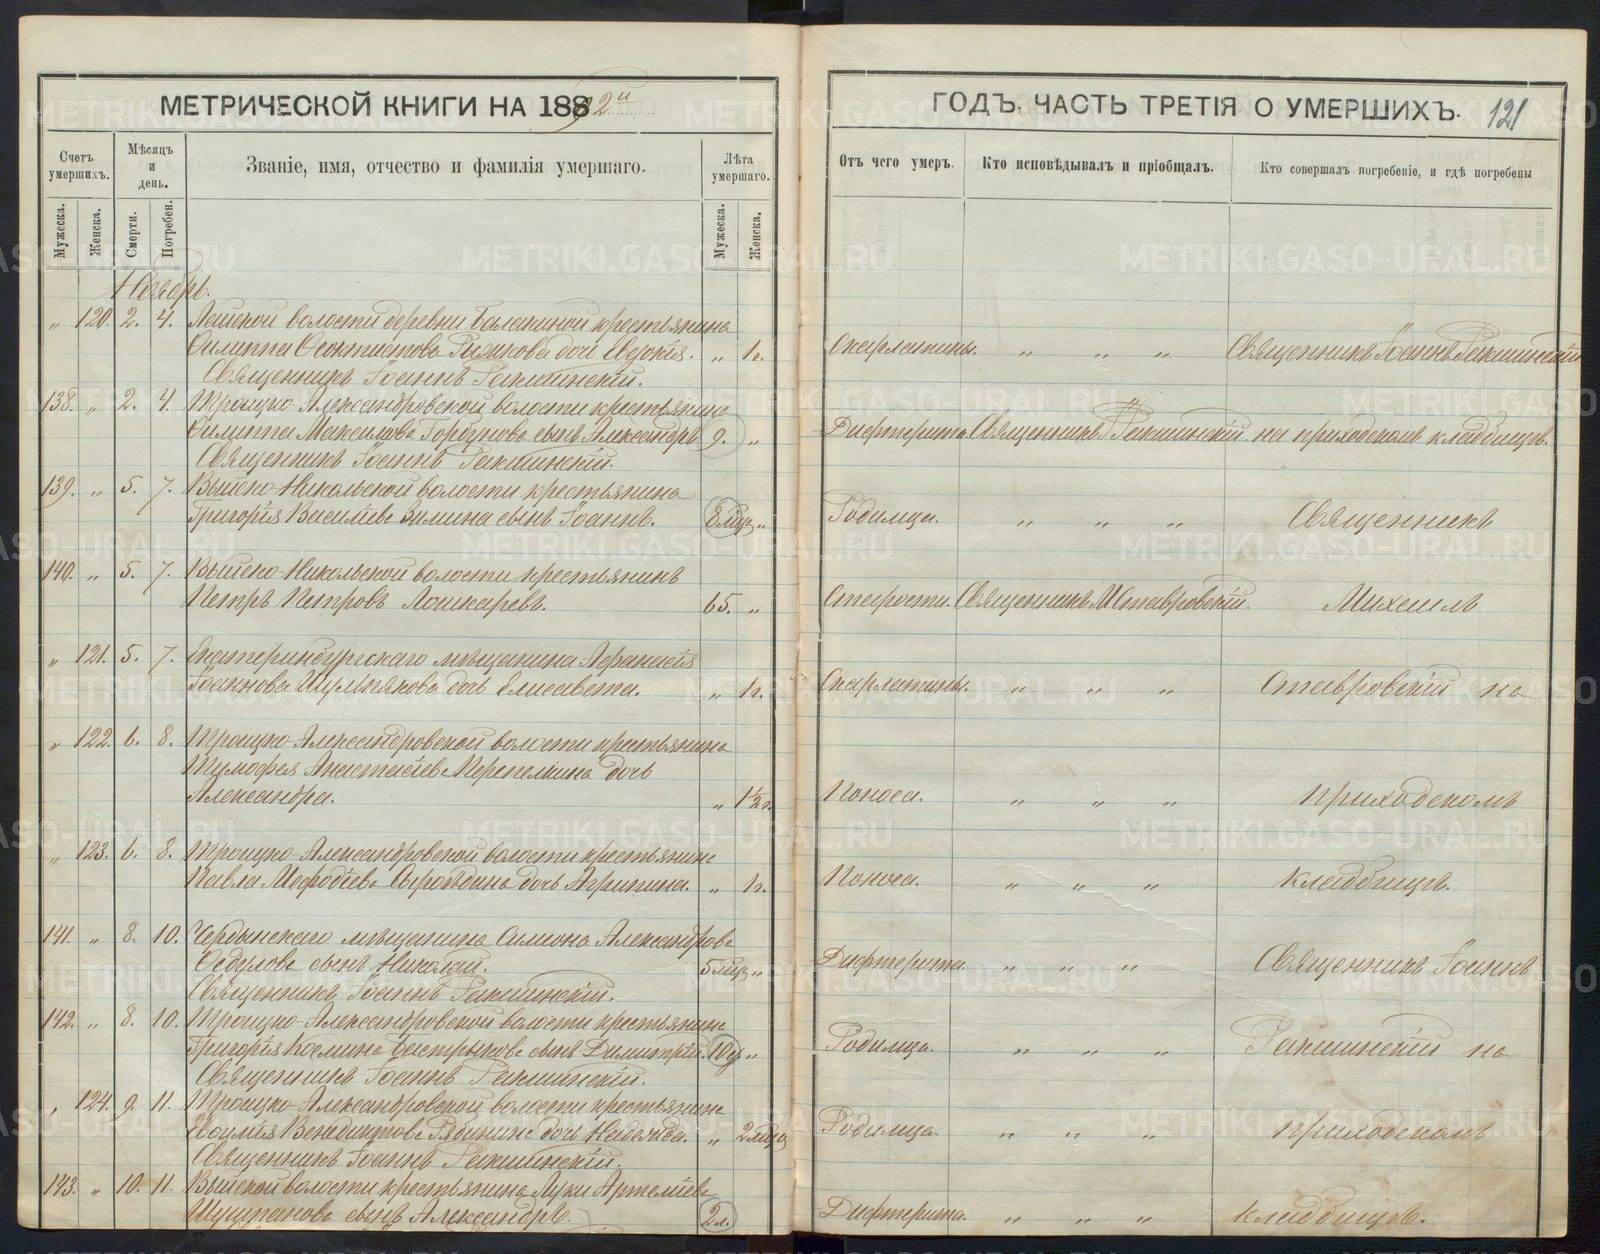 МЕТРИЧЕСКОЙ КНИГИ НА 1892й
Счетъ умершихъ.
Мѣсяцъ и день.
Званіе, имя, отчество и фамилія умершаго.
Лѣта умершаго.
Мужеска.
Женска.
Смерти.
Погребен.
Мужеска.
Женска.
Ноябрь.
„ 120. 2. 4. волости деревни Балакиной крестьянина
Филиппа Феоктистова дочь Евдокія. „ 1 г.
Священникъ Іоаннъ
138. „ 2. 4. Троицко-Александровской волости крестьянина
Филиппа Максимова Горбунова сынъ Александръ 9. „
Священникъ Іоаннъ
139. „ 5. 7. Выйско-Никольской волости крестьянина
Григорія Василіева Зимина сынъ Іоаннъ. 8 мцв „
140. „ 5. 7. Выйско-Никольской волости крестьянинъ
Петръ Петровъ Лошкаревъ. 65. „
„ 121. 5. 7. Екатеринбургскаго мѣщанина Афанасія
Іоаннова дочь Елисавета. „ 1 г.
„ 122. 6. 8. Троицко-Александровской волости крестьянина
Тимофея Анастасіева Перепелкина дочь
Александра. „ 1½ г.
„ 123. 6. 8. Троицко-Александровской волости крестьянина
Павла Мефодіева Сыроѣдина дочь Агрипина. „ 1 г.
141. „ 8. 10. Чердынскаго мѣщанина Симеона Александрова
Федулова сынъ Николай. 5 мцв „
Священникъ Іоаннъ
142. „ 8. 10. Троицко-Александровской волости крестьянина
Григорія Космина сынъ Димитрій. 10 „
Священникъ Іоаннъ
„ 124. 9. 11. Троицко-Александровской волости крестьянина
Венедиктова Рябинина дочь Надежда. „ 2 мцв
Священникъ Іоаннъ
143. „ 10. 11. Выйской волости крестьянина Луки Артеміева
сынъ Александръ. 2 л.
ГОДЪ, ЧАСТЬ ТРЕТІЯ О УМЕРШИХЪ. 121
Отъ чего умеръ.
Кто исповѣдывалъ и пріобщалъ.
Кто совершалъ погребеніе, и гдѣ погребены
Скарлатины. „ „ „ Священникъ Іоаннъ
Дифтерита Священникъ на приходскомъ кладбищѣ.
Родимца. „ „ „ Священникъ
Старости. Священникъ М Ставровскій. Михаилъ
Скарлатины. „ „ „ Ставровскій на
Поноса. „ „ „ приходскомъ
Поноса. „ „ „ кладбищѣ.
Дифтерита. „ „ „ Священникъ Іоаннъ
Родимца. „ „ „ на
Родимца. „ „ „ приходскомъ
Дифтерита. „ „ „ кладбищѣ.
METRIKI.GASO-URAL.RU